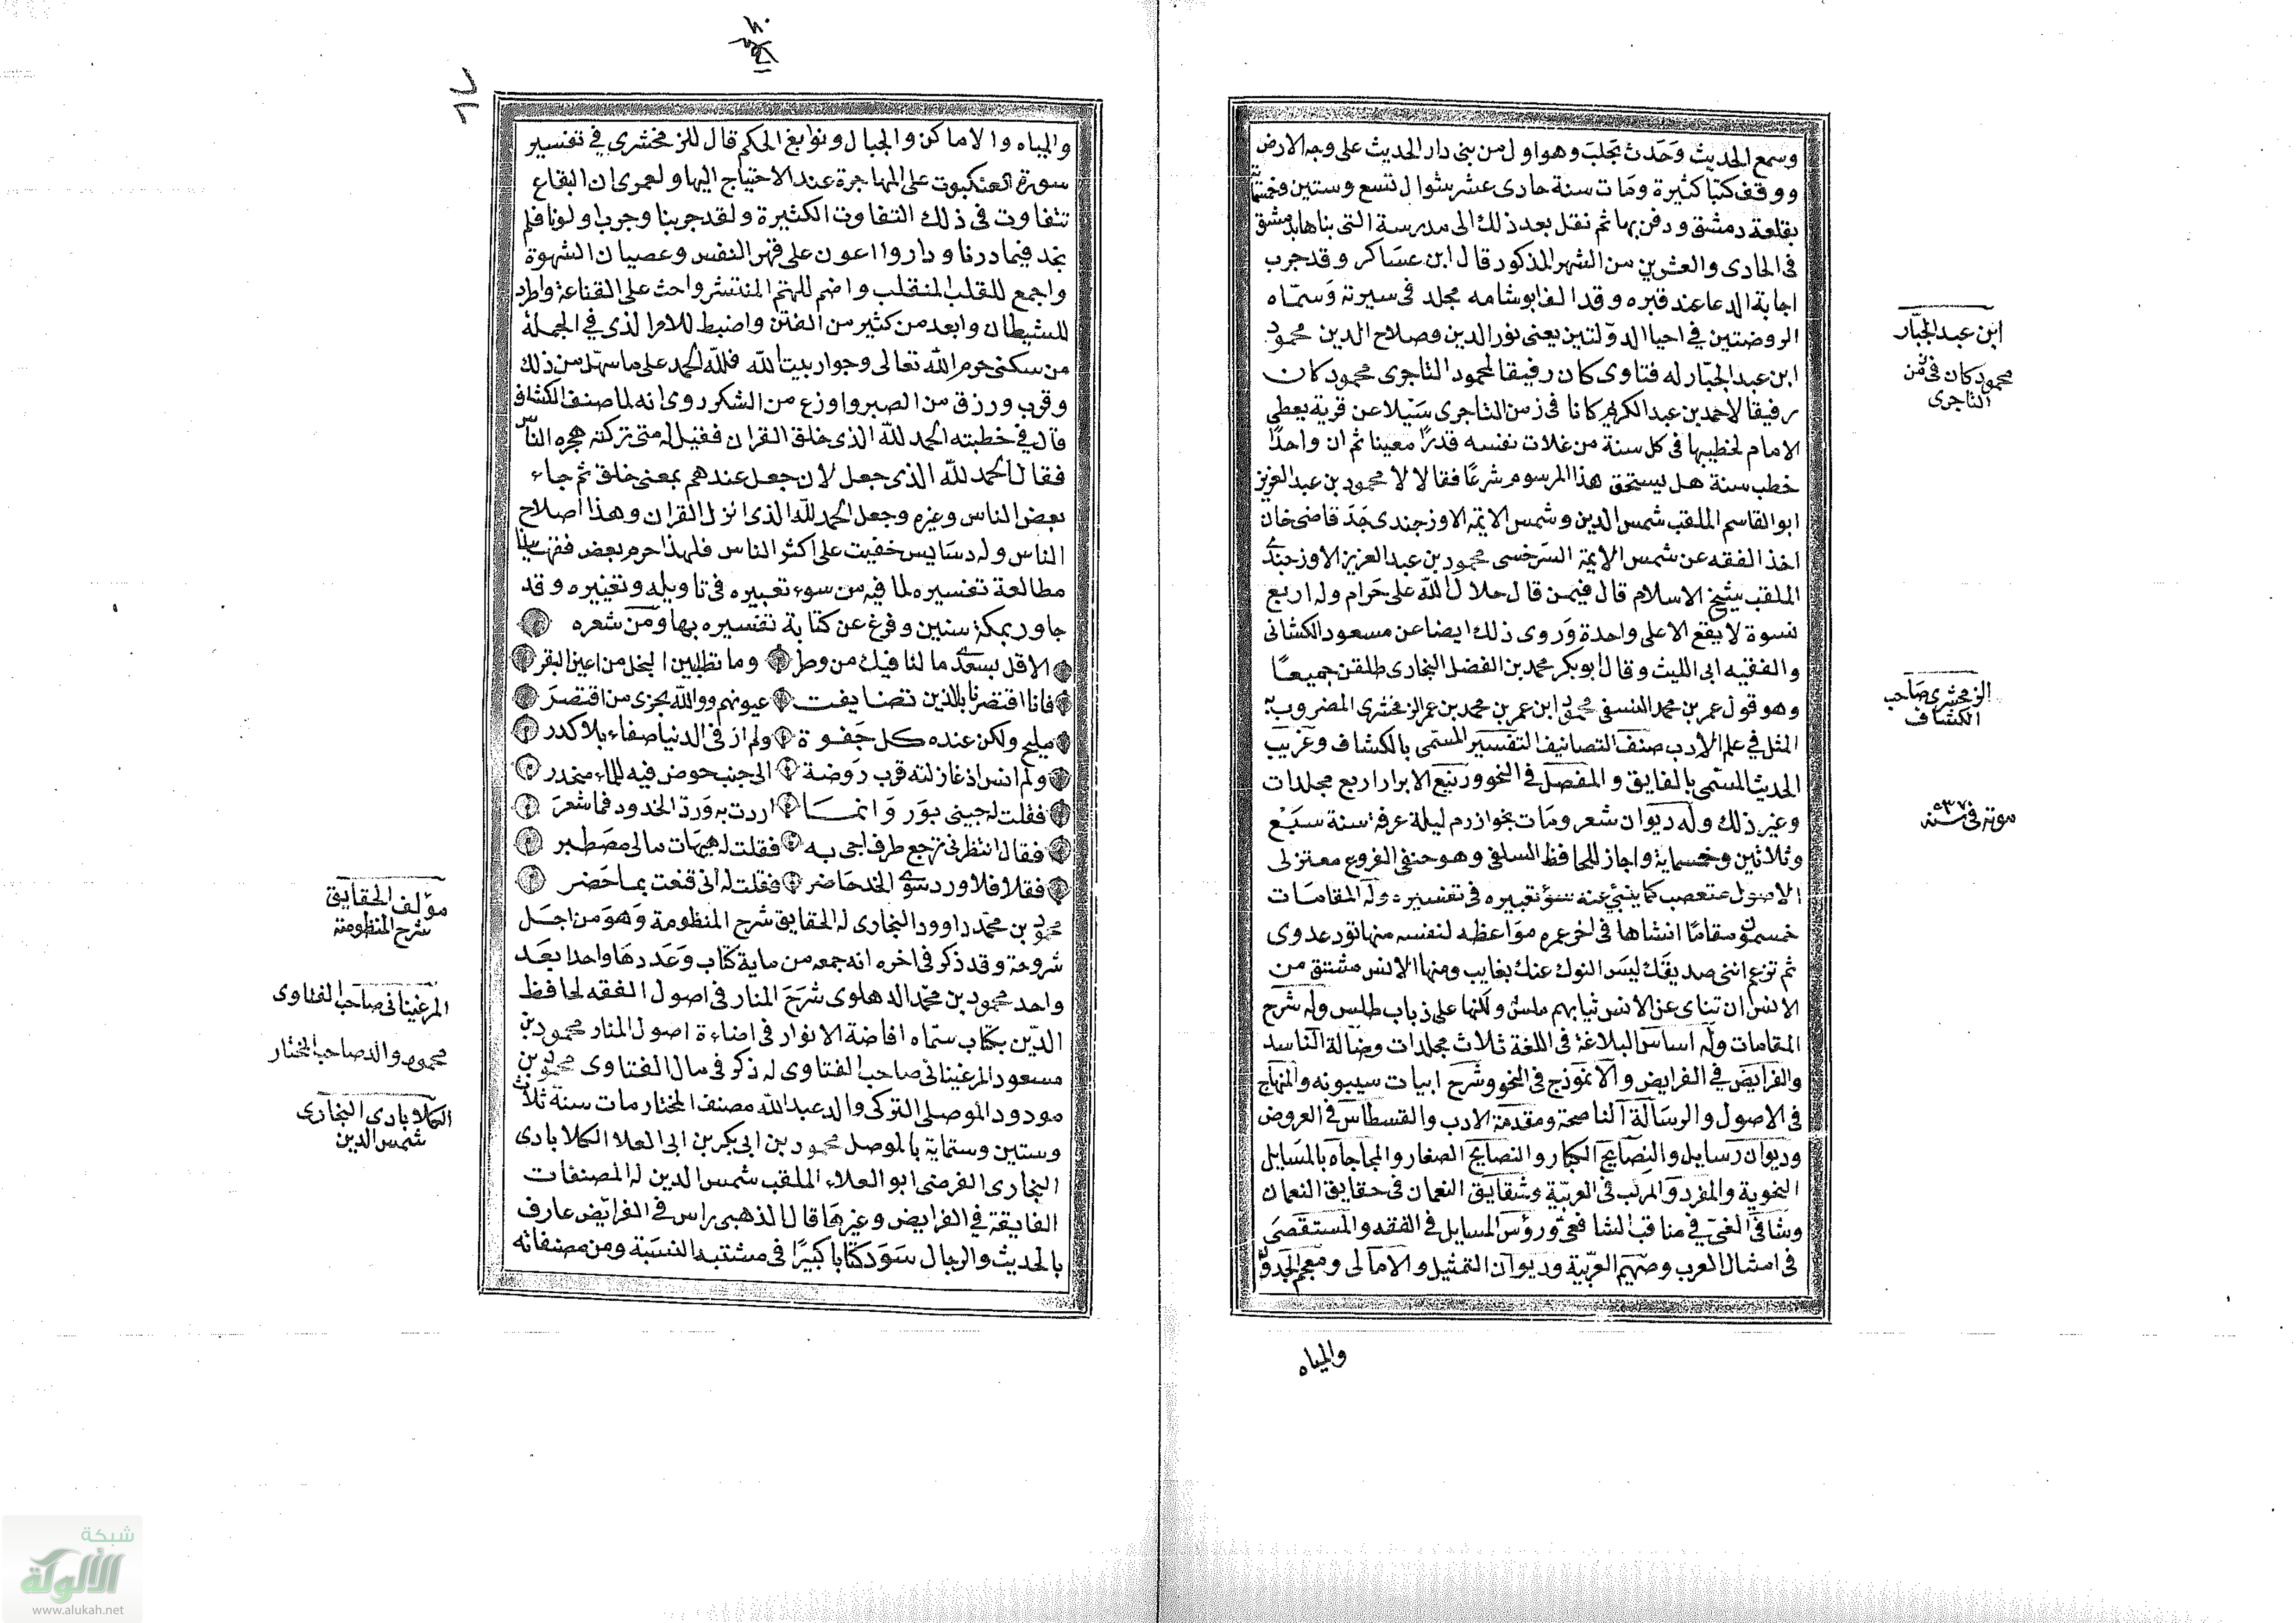 وسمع الحديث وحدث بحلب وهو اول من بنى دار الحديث على وجه الارض
ووقف كتبا كثيرة ومات سنة حادى عشر شوال تسع وستين وخمسمائة
بقلعة دمشق ودفن بها ثم نقل بعد ذلك الى مدرسة التى بناها بدمشق
فى الحادى والعشرين من الشهر المذكور قال ابن عساكر وقد جرب
اجابة الدعا عند قبره وقد الف ابو شامه مجلد فى سيرته وسمّاه
الروضتين فى احيا الدولتين يعنى نور الدين وصلاح الدين محمود
ابن عبد الجبّار له فتاوى كان رفيقا لمحمود التاجرى محمود كان
رفيقا لاحمد بن عبد الكريم كانا فى زمن التاجرى سئلا عن قرية يعطى
الامام لخطيبها فى كل سنة من غلات نفسه قدرًا معينا ثم ان واحدًا
خطب سنة هل يستحق هذا المرسوم شرعًا فقالا لا محمود بن عبد العزيز
ابو القاسم الملقب شمس الدين وشمس الايمة الاوزجندى جَدّ قاضى خان
اخذ الفقه عن شمس الايمة السرخسى محمود بن عبد العزيز الاوزجندى
الملقب بشيخ الاسلام قال فيمن قال حلال الله على حَرام وله اربع
نسوة لا يقع الا على واحدة وَروى ذلك ايضا عن مسعود الكشانى
والفقيه ابى الليث وقال ابو بكر محمد بن الفضل البخارى طلقن جميعًا
وهو قول عمر بن محمد النسفى محمود ابن عمر بن محمد بن عمر الزمخشرى المضروب به
المثل فى علم الادب صنف التصانيف التفسير المسمى بالكشاف وغريب
الحديث المسمّى بالفايق والمفصل فى النحو وربيع الابرار اربع مجلدات
وغير ذلك وله ديوان شعر ومات بخوازرم ليلة عرفة سنة سَبْع
وثلاثين وخمسماية واجاز للحافظ السلفى وهو حنفى الفروع معتزلى
الاصول متعصب كما ينبئ عنه سؤ تعبيره فى تفسيره وله المقامات
خمسون مقامًا انشاها فى اخر عمره مواعظه لنفسه منها تود عدوى
ثم تزعم اننى صديقك ليس النوك عنك بغايب ومنها الانس مشتق من
الانس ان تناى عن الانس ثيابهم ملس ولكنها على ذياب طلس وله شرح
المقامات وله اساس البلاغة فى اللغة ثلاث مجلدات وضالة الناشد
والفرايض فى الفرايض والانموذج فى النحو وشرح ابيات سيبويه والمنهاج
فى الاصول والرسالة الناصحة ومقدمة الادب والقسطاس فى العروض
وديوان رسايل والنصايح الكبار والنصايح الصغار والمحاجاه بالمسايل
النحوية والمفرد والمركب فى العربيّة وشقايق النعمان فى حقايق النعمان
وشافى الغىّ فى مناقب الشافعى ورؤس المسايل فى الفقه والمستقصى
فى امثال العرب وصميم العربيّة وديوان التمثيل والامالى ومعجم الحدود
والمياه
ابن عبد الجبّار
محمود كان فى زمن
التاجرى
الزمخشرى صَاحب
الكشاف
موته فى سنة ٥٣٧
والمياه والاماكن والجبال ونوابغ الحكم قال للزمخشرى فى تفسير
سورة العنكبوت على المهاجرة عند الاحتياج اليها ولعمرى ان البقاع
تتفاوت فى ذلك التفاوت الكثيرة ولقد جربنا وجرب اولونا فلم
نجد فيما درنا وداروا اعون على قهر النفس وعصيان الشهوة
واجمع للقلب المنقلب واضم للهم المنتشر واحث على القناعة واطرد
للشيطان وابعد من كثير من الفتن واضبط للامر الذى فى الجملة
من سكنى حرم الله تعالى وجوار بيت الله فلله الحمد على ما سهل من ذلك
وقرب ورزق من الصبر واوزع من الشكر روى انه لما صنف الكشاف
قال فى خطبته الحمد لله الذى خلق القران فقيل له متى تركته هجره الناس
فقال الحمد لله الذى جعل لان جعل عندهم بمعنى خلق ثم جاء
بعض الناس وغيره وجعل الحمد لله الذى انزل القران وهذا اصلاح
الناس وله دسايس خفيت على اكثر الناس فلهذا حرم بعض فقهائنا
مطالعة تفسيره لما فيه من سوء تعبيره فى تاويله وتغييره وقد
جاور بمكة سنين وفرغ عن كتابة تفسيره بها ومن شعره
الا قل بسعدى ما لنا فيك من وطر وما تطلبين النجل من اعين البقر
فانا اقتصرنا بالذين تضايفت عيونهم والله يجزى من اقتصر
مليح ولكن عنده كل جَفوة ولم ار فى الدنيا صفاء بلا كدر
ولم انس اذ غازلته قرب رَوضة الى جنب حوض فيه للماء منحدر
فقلت له جينى بورد وانمسا اردت به وَرد الخدود فما شعرَ
فقال انتظرنى ترجع طرف اجى به فقلت له هيهات مالى مصطبر
فقال فلا ورد سوى الخد حَاضر فقلت له انى قنعت بما حَضر
محمود بن محمّد داوود البخارى له الحقايق شرح المنظومة وَهوَ من اجَل
شروحة وقد ذكر فى اخره انه جمعه من ماية كتاب وَعَددهَا واحدا بعَد
واحد محمود بن محمّد الدهلوى شرَحَ المنار فى اصول الفقه لحافظ
الدّين بكتاب سمّاه افاضة الانوار فى اضاءة اصول المنار محمود بن
مسعود المرغينانى صاحب الفتاوى له ذكر فى مال الفتاوى محمود بن
مودود الموصلى التركى والد عبد الله مصنف المختار مات سنة ثلاث
وستين وستماية بالموصل محمود بن ابى بكر بن ابى العلا الكلابادى
البخارى الفرضى ابو العلاء الملقب شمس الدين له المصنفات
الفايقة فى الفرايض وغيرهَا قال الذهبى راس فى الفرايض عارف
بالحديث والرجال سَوَد كتابا كبيرًا فى مشتبه النسبة ومن مصنفاته
مؤلف الحقايق
شرح المنظومة
المرغينانى صَاحب الفتاوى
محمود والد صاحب المختار
الكلابادى البخارى
شمس الدين
شبكة
الألوكة
www.alukah.net